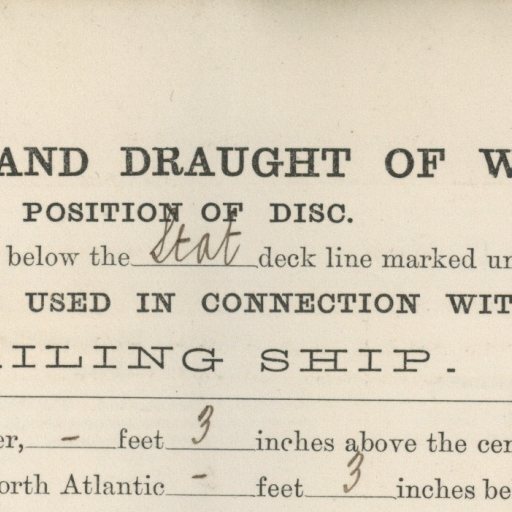 AND DRAUGHT OF W
POSITION OF DISC.
below the Stat deck line marked un
USED IN CONNECTION WIT
ILING SHIP.
er, - feet 3 inches above the cen
orth Atlantic - feet 3 inches be